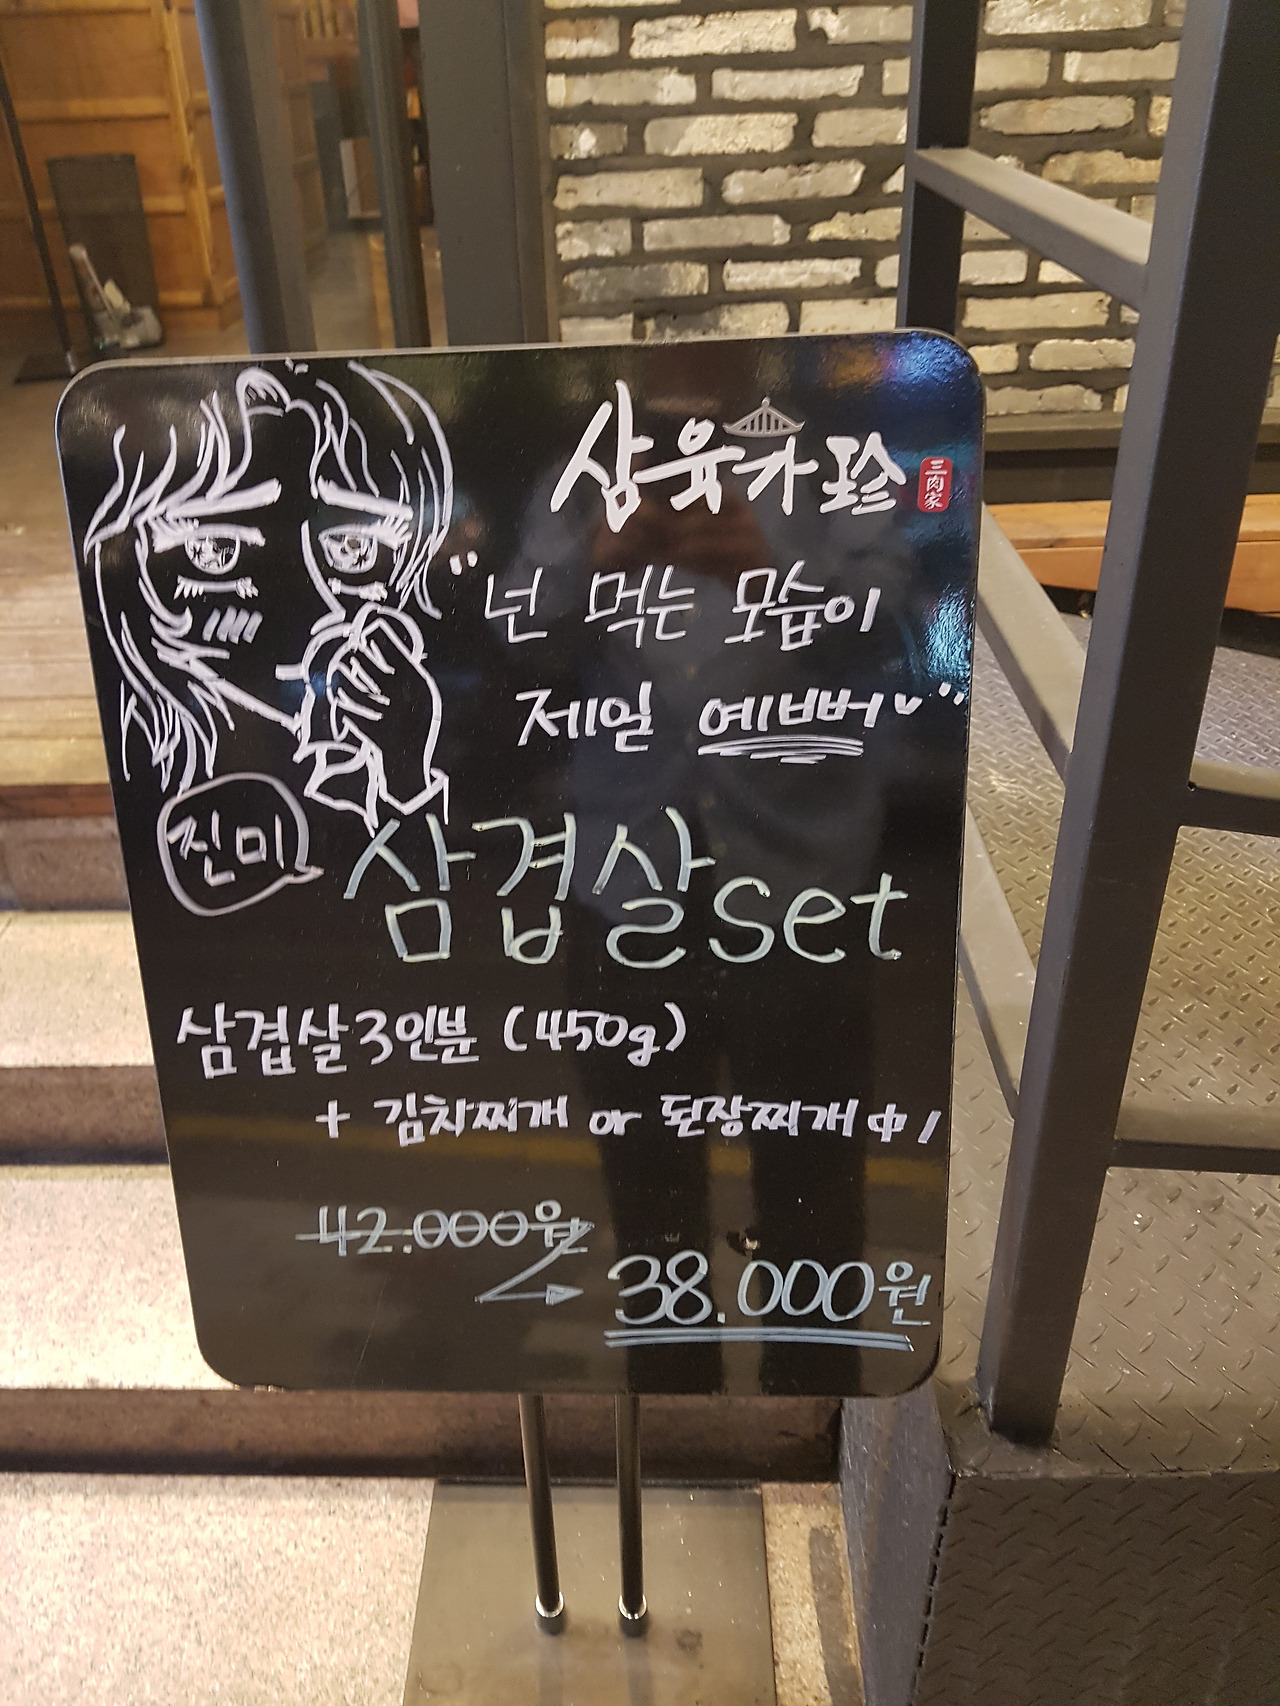 삼육가珍
三肉家
"넌 먹는 모습이
제일 예뻐"
진미
삼겹살set
삼겹살3인분 (450g)
+ 김치찌개 or 된장찌개 中1
42.000원
38.000원